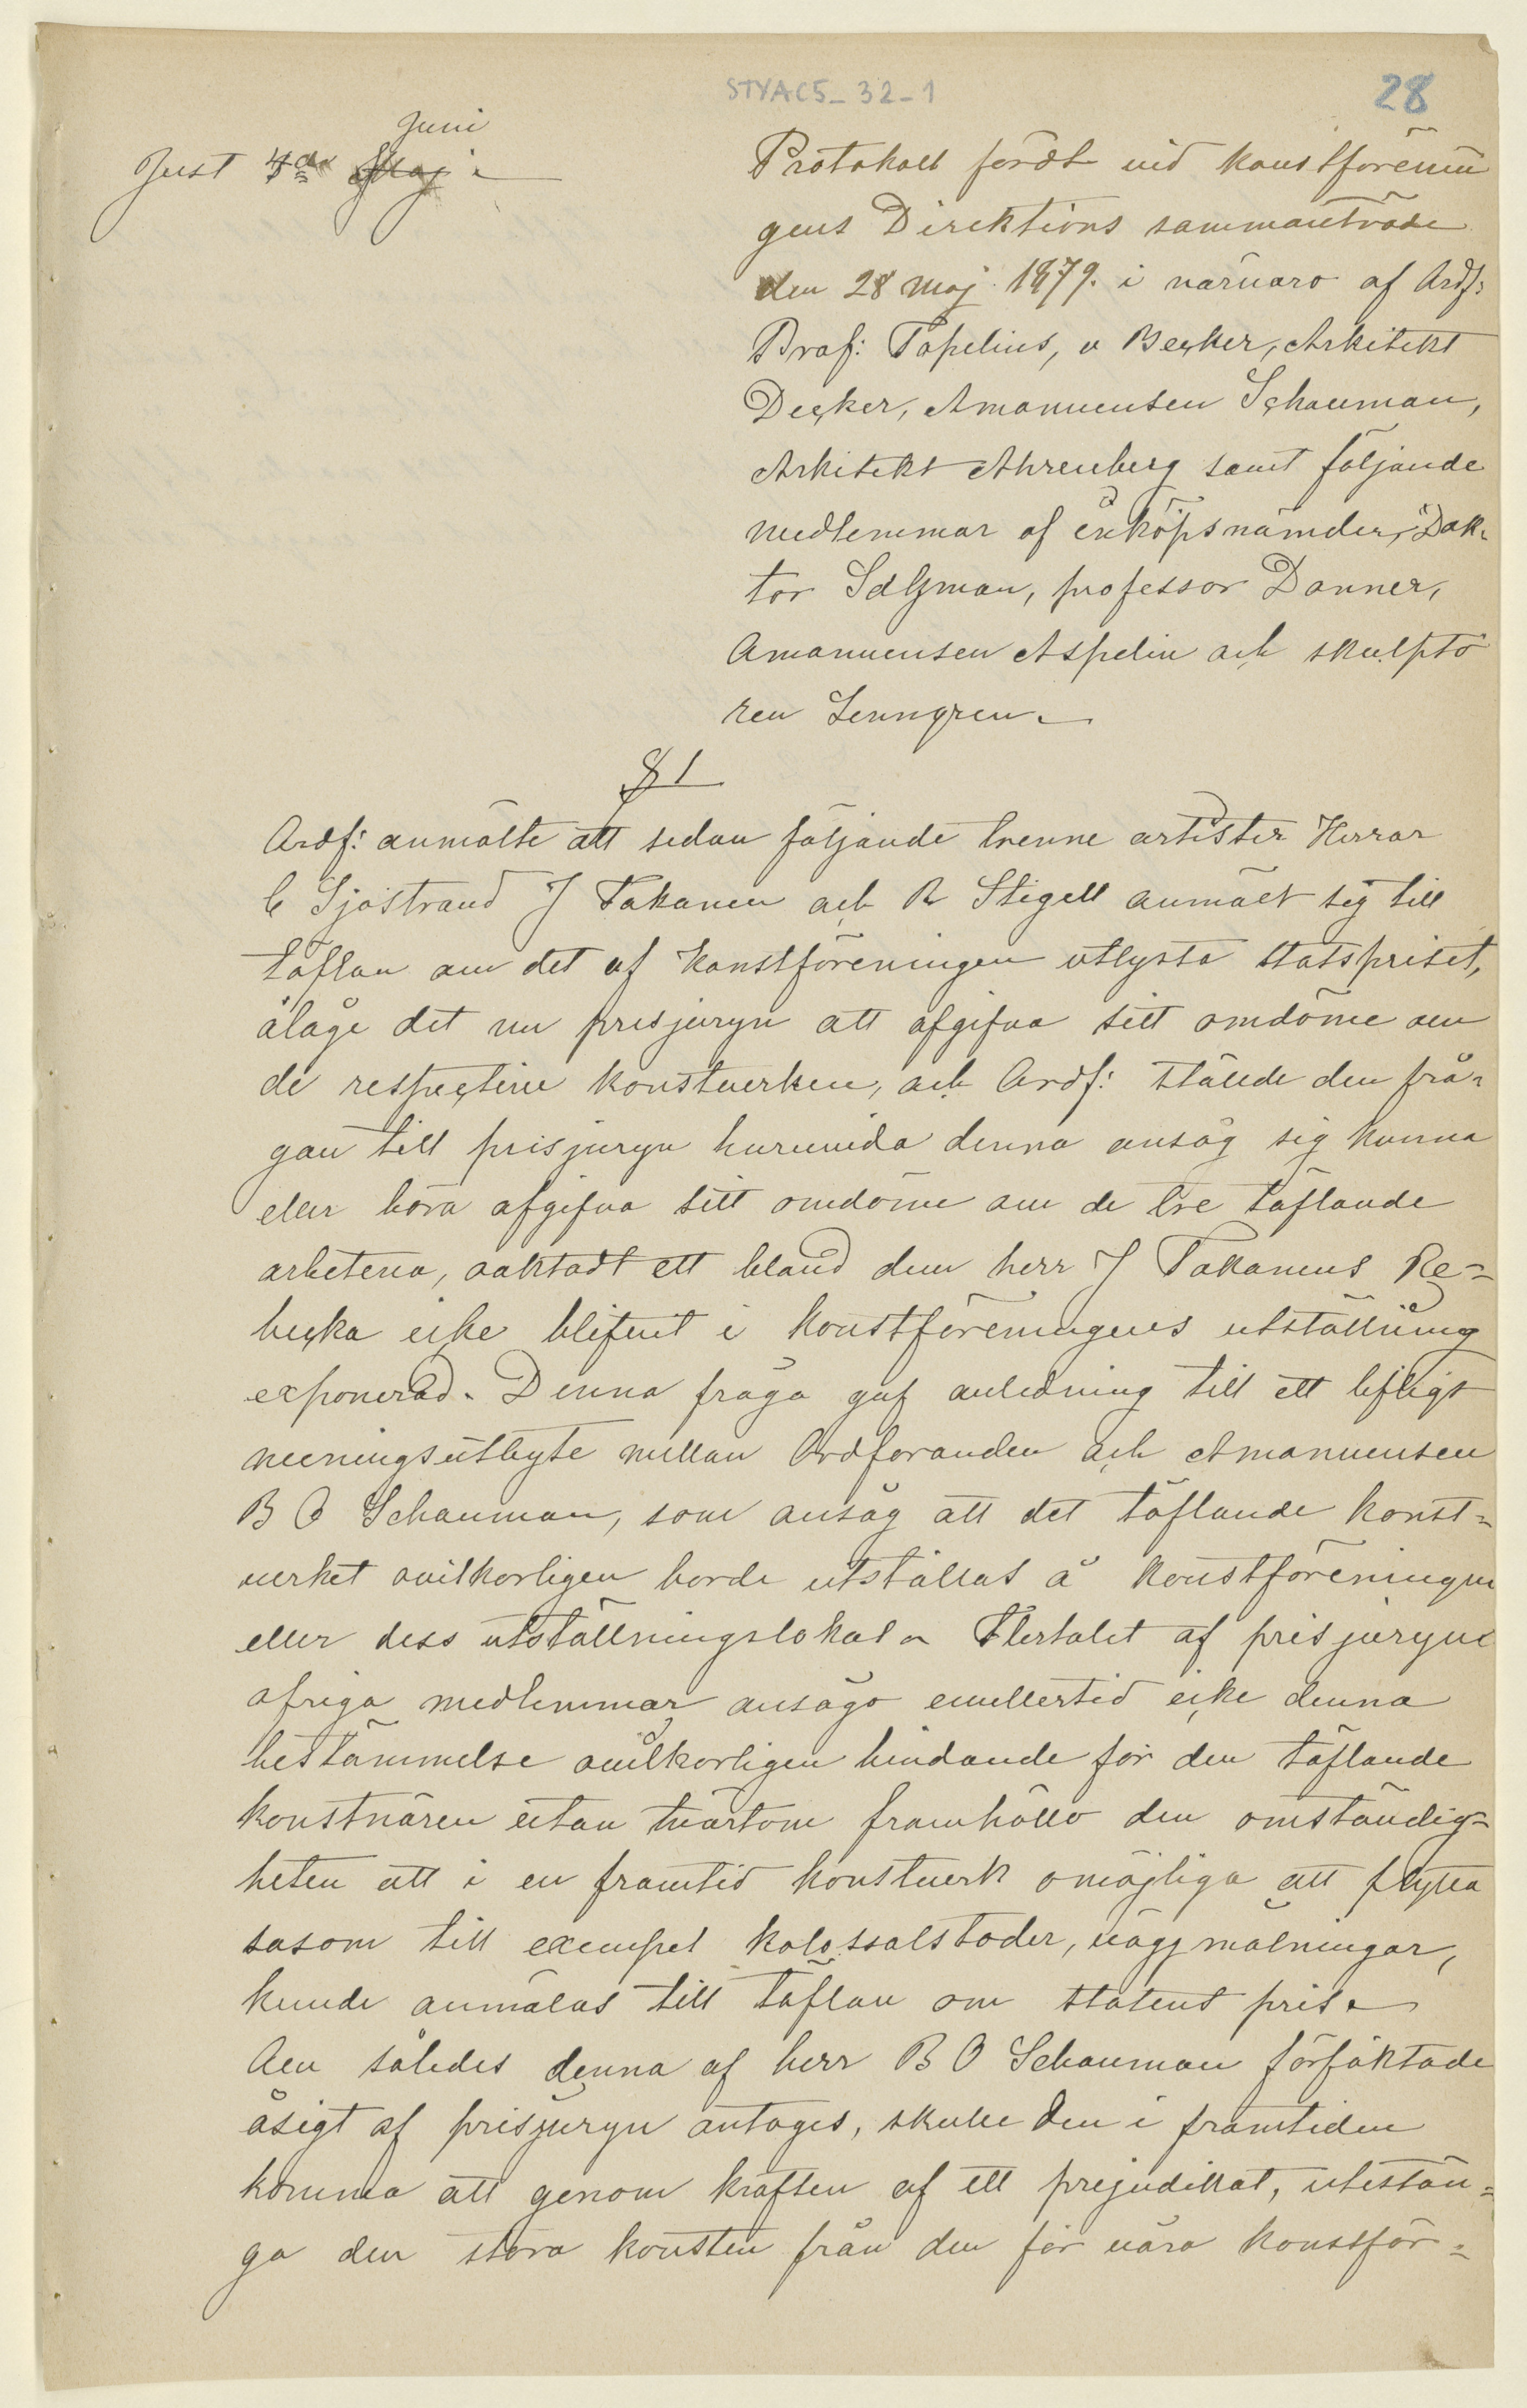 STYAC5_32_1
28
Juni
Just 4de Maj
Protokoll fördt vid Konstförenin
gens Direktions sammanträde
den 28 maj 1879. i närvaro af Ordf:
Prof: Topelius, v Becker, Arkitekt
Decker, Amanuensen Schauman,
Arkitekt Ahrenberg samt följande
medlemmar af inköpsnämden, Dok-
tor Saltzman, professor Donner,
Amanuensen Aspelin och skulptö
ren Lenngren.
§ 1
Ordf: anmälte att sedan följande trenne artister Herrar
C Sjöstrand J Takanen och R Stigell anmält sig till
täflan om det af Konstföreningen utlysta statspriset,
åläge det nu prisjuryn att afgifva sitt omdöme om
de respective konstverken, och Ordf: stälde den frå-
gan till prisjuryn huruvida denna ansåg sig kunna
eller böra afgifva sitt omdöme om de tre täflande
arbetena, oaktadt ett bland dem herr J Takanens Re-
becka icke blifvit i Konstföreningens utställning
exponerad. Denna fråga gaf anledning till ett lifligt
meningsutbyte mellan Ordföranden och Amanuensen
B O Schauman, som ansåg att det täflande konst-
verket ovilkorligen borde utställas å Konstföreningen
eller dess utställningslokal. Flertalet af prisjuryns
öfriga medlemmar ansågo emellertid icke denna
bestämmelse ovilkorligen bindande för den täflande
konstnären utan tvärtom framhöllo den omständig-
heten att i en framtid konstverk omöjliga att flytta
såsom till exempel kolossalstoder, väggmålningar,
kunde anmälas till täflan om statens pris.
Om således denna af herr B O Schauman förfäktade
åsigt af prisjuryn antoges, skulle den i framtiden
komma att genom kraften af ett prejudikat, utestän-
ga den stora konsten från den för våra konstför-